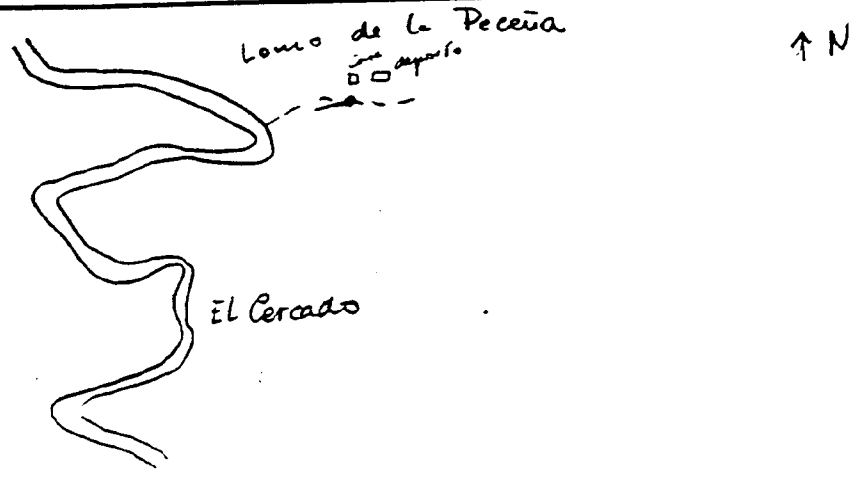 Lomo de la Peceña
N
depósito
El Cercado